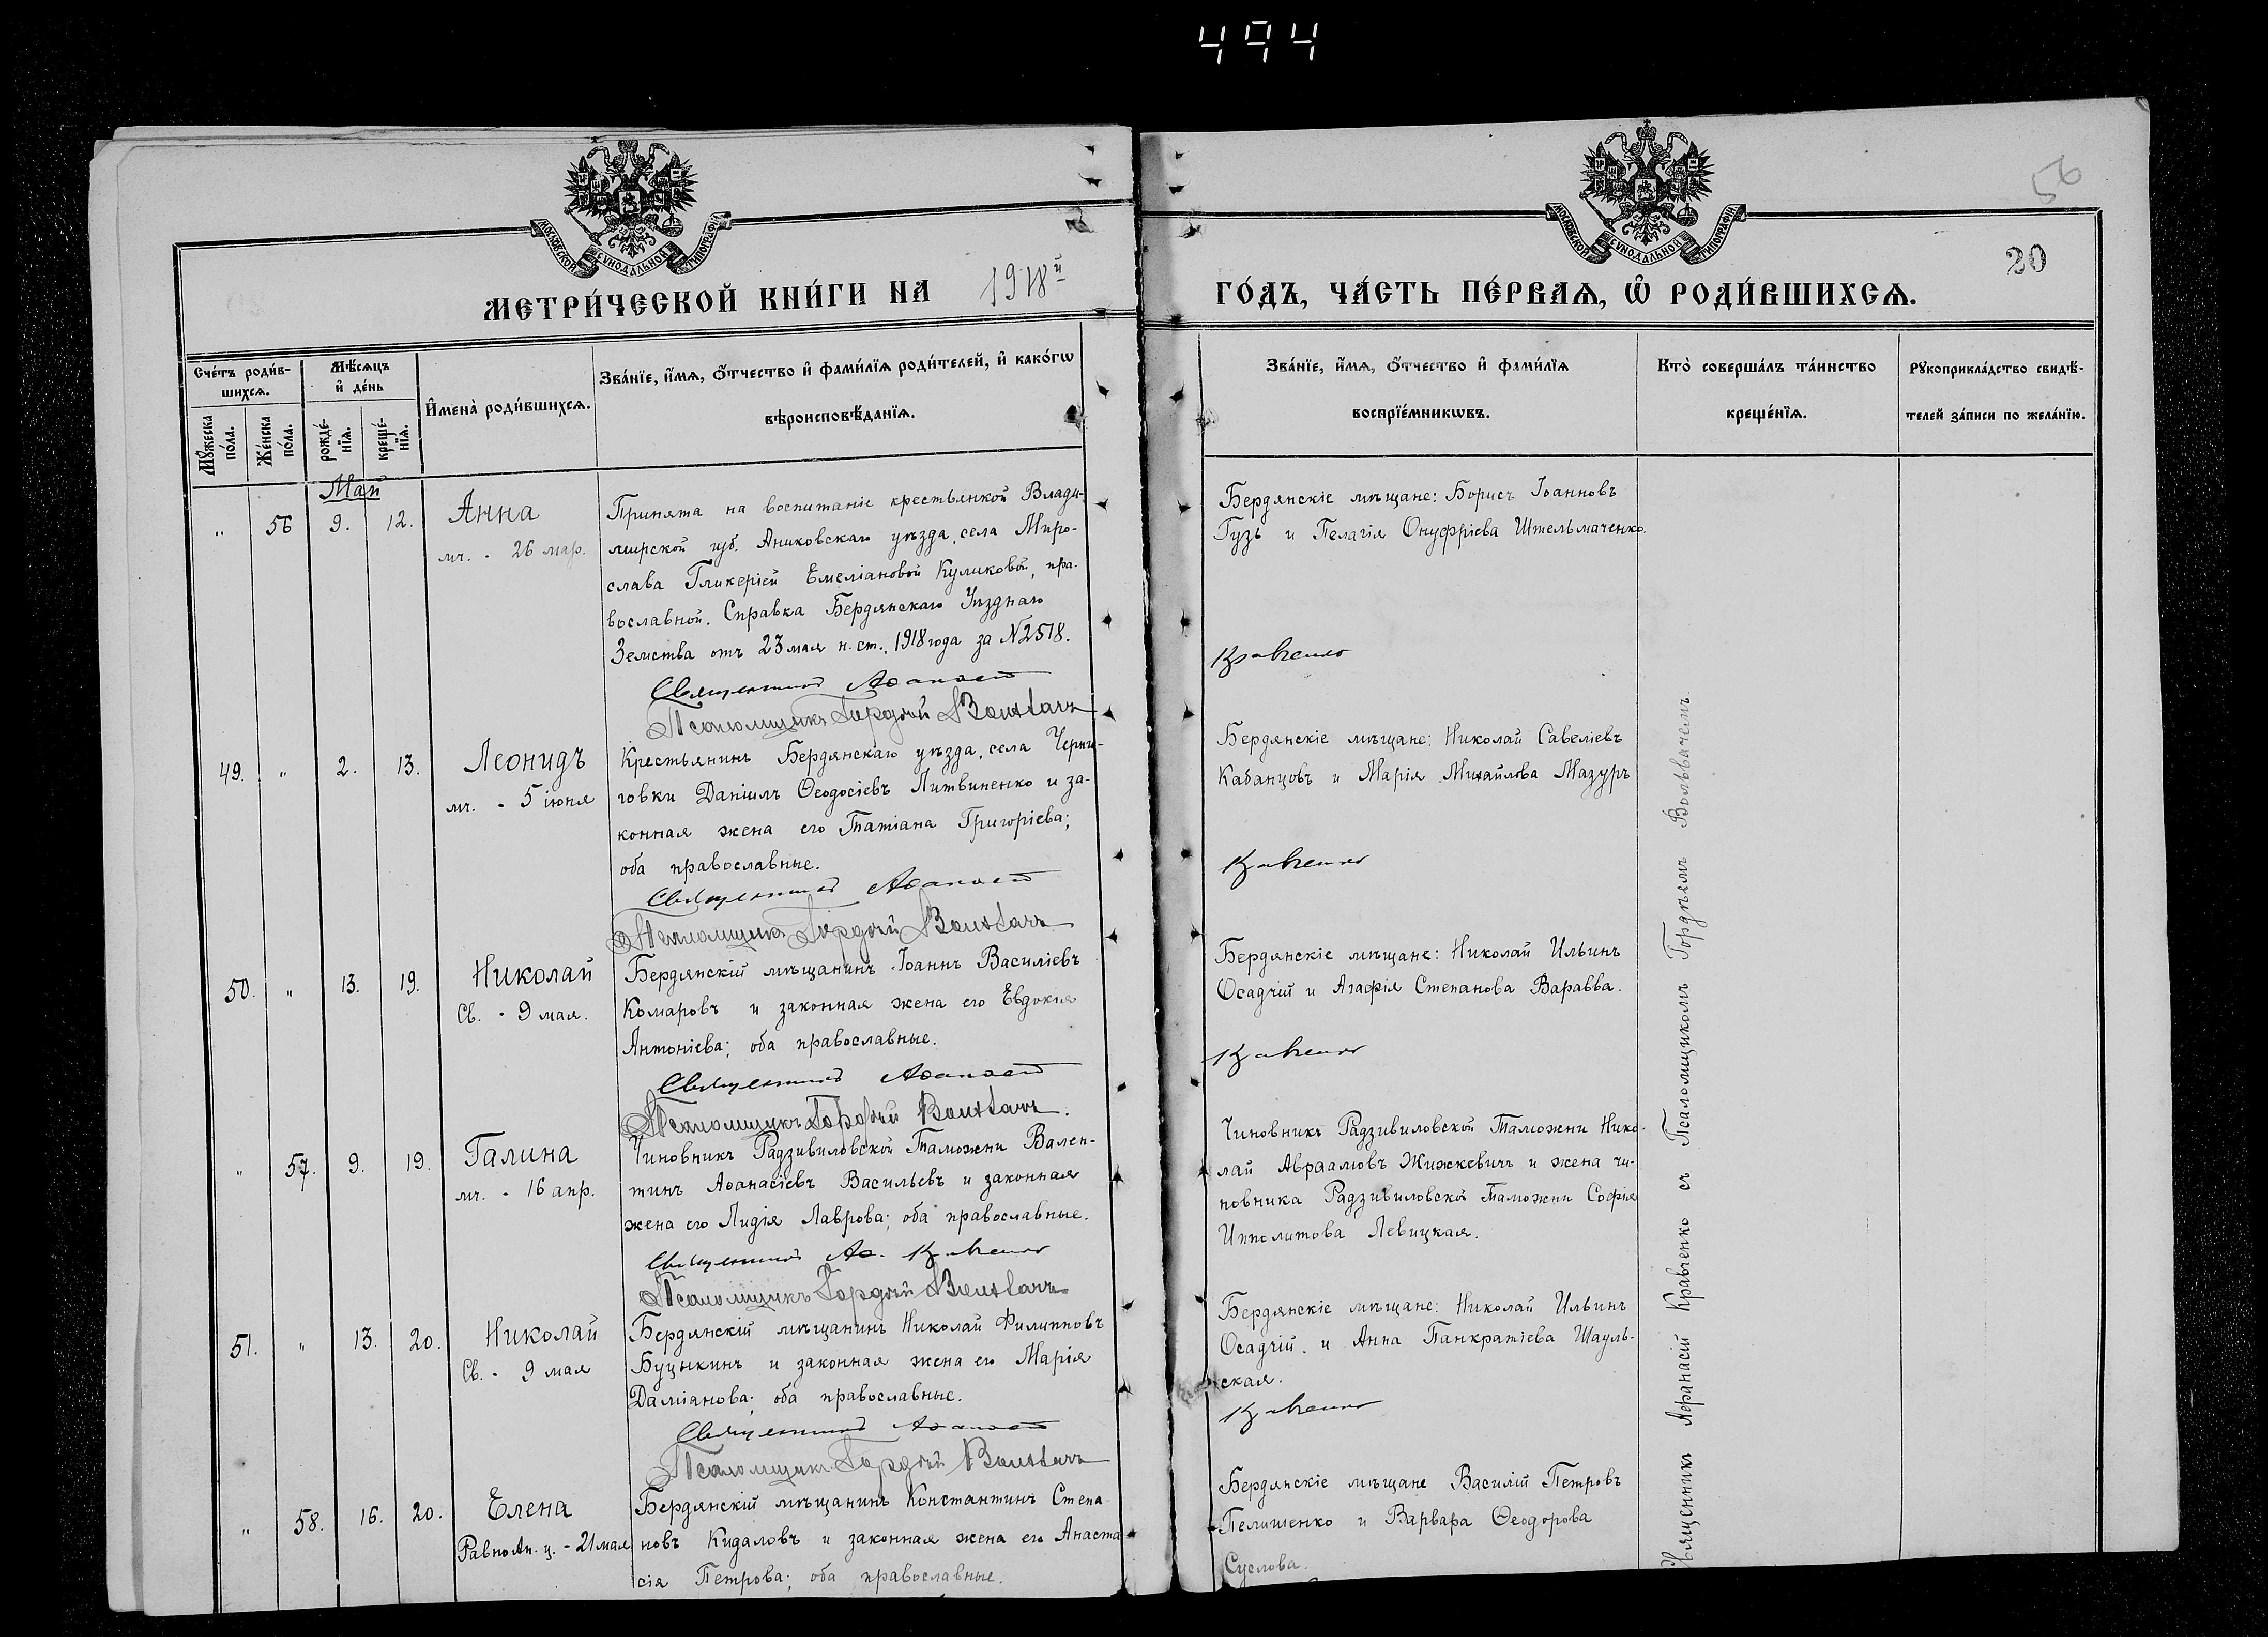 494
56
20
МОСКОВСКОЙ СѴНОДАЛЬНОЙ ТИПОГРАФІИ
МОСКОВСКОЙ СѴНОДАЛЬНОЙ ТИПОГРАФІИ
МЕТРИ́ЧЕСКОЙ КНИ́ГИ НА 1918й
ГО́ДЪ, ЧА́СТЬ ПЕ́РВАѦ, Ѽ РОДИ́ВШИХСѦ.
Сче́тъ роди́в-
шихсѧ.
Мꙋ́жеска
по́ла.
Же́нска
по́ла.
Мѣ́сѧцъ
и҆ де́нь
рожде́-
нїѧ.
креще́-
нїѧ.
И҆мена̀ роди́вшихсѧ.
Зва́нїе, и҆́мѧ, ѻ҆́тчество и҆ фами́лїѧ роди́телей, и҆ како́гѡ
вѣроисповѣ́данїѧ.
Зва́нїе, и҆́мѧ, ѻ҆́тчество и҆ фами́лїѧ
воспрїе́мникѡвъ.
Кто̀ соверша́лъ та́инство
креще́нїѧ.
Рꙋкоприкла́дство свидѣ́-
телей за́писи по жела́нїю.
Май
" 56 9. 12.
Анна
мч. - 26 мар.
Принята на воспитаніе крестьянкой Влади-
мирской губ. Аниковскаго уѣзда, села Миро-
слава Гликеріей Емеліановой Куликовой, пра-
вославной. Справка Бердянскаго Уѣзднаго
Земства отъ 23 мая н. ст., 1918 года за N2518.
Священникъ Аѳанасій
Псаломщикъ Гордѣй Вольвачъ
Бердянскіе мѣщане: Борисъ Іоанновъ
Гузь и Пелагія Онуфріева Штельмаченко.
Кравченко
49. " 2. 13.
Леонидъ
мч. - 5 іюня
Крестьянинъ Бердянскаго уѣзда, села Черни-
говки Даніилъ Ѳеодосіевъ Литвиненко и за-
конная жена его Татіана Григоріева;
оба православные.
Священникъ Аѳанасій
Псаломщикъ Гордѣй Вольвачъ
Бердянскіе мѣщане: Николай Савеліевъ
Кабанцовъ и Марія Михайлова Мазуръ
Кравченко
50. " 13. 19.
Николай
Св. - 9 мая.
Бердянскій мѣщанинъ Іоаннъ Василіевъ
Комаровъ и законная жена его Евдокія
Антоніева; оба православные.
Священникъ Аѳанасій
Псаломщикъ Гордѣй Вольвачъ.
Бердянскіе мѣщане: Николай Ильинъ
Осадчій и Агафія Степанова Варавва.
Кравченко
" 57. 9. 19.
Галина
мч. - 16 апр.
Чиновникъ Радзивиловской Таможни Вален-
тинъ Аѳанасіевъ Васильевъ и законная
жена его Лидія Лаврова; оба православные.
Священникъ Аѳ. Кравченко
Псаломщикъ Гордѣй Вольвачъ
Чиновникъ Радзивиловской Таможни Нико-
лай Авраамовъ Жижкевичъ и жена чи-
новника Радзивиловской Таможни Софія
Ипполитова Левицкая.
51. " 13. 20.
Николай
Св. - 9 мая
Бердянскій мѣщанинъ Николай Филипповъ
Буцыкинъ и законная жена его Марія
Даміанова; оба православные.
Священникъ Аѳанасій
Псаломщикъ Гордѣй Вольвачъ
Бердянскіе мѣщане: Николай Ильинъ
Осадчій. и Анна Панкратіева Шауль-
ская.
Кравченко
" 58. 16. 20.
Елена
РавноАп. ц. - 21 мая
Бердянскій мѣщанинъ Константинъ Степа
новъ Кидаловъ и законная жена его Анаста
сія Петрова; оба православные.
Бердянскіе мѣщане Василій Петровъ
Пелишенко и Варвара Ѳеодорова
Суслова.
Священникъ Афанасій Кравченко съ Псаломщикомъ Гордѣемъ Вольвачемъ.